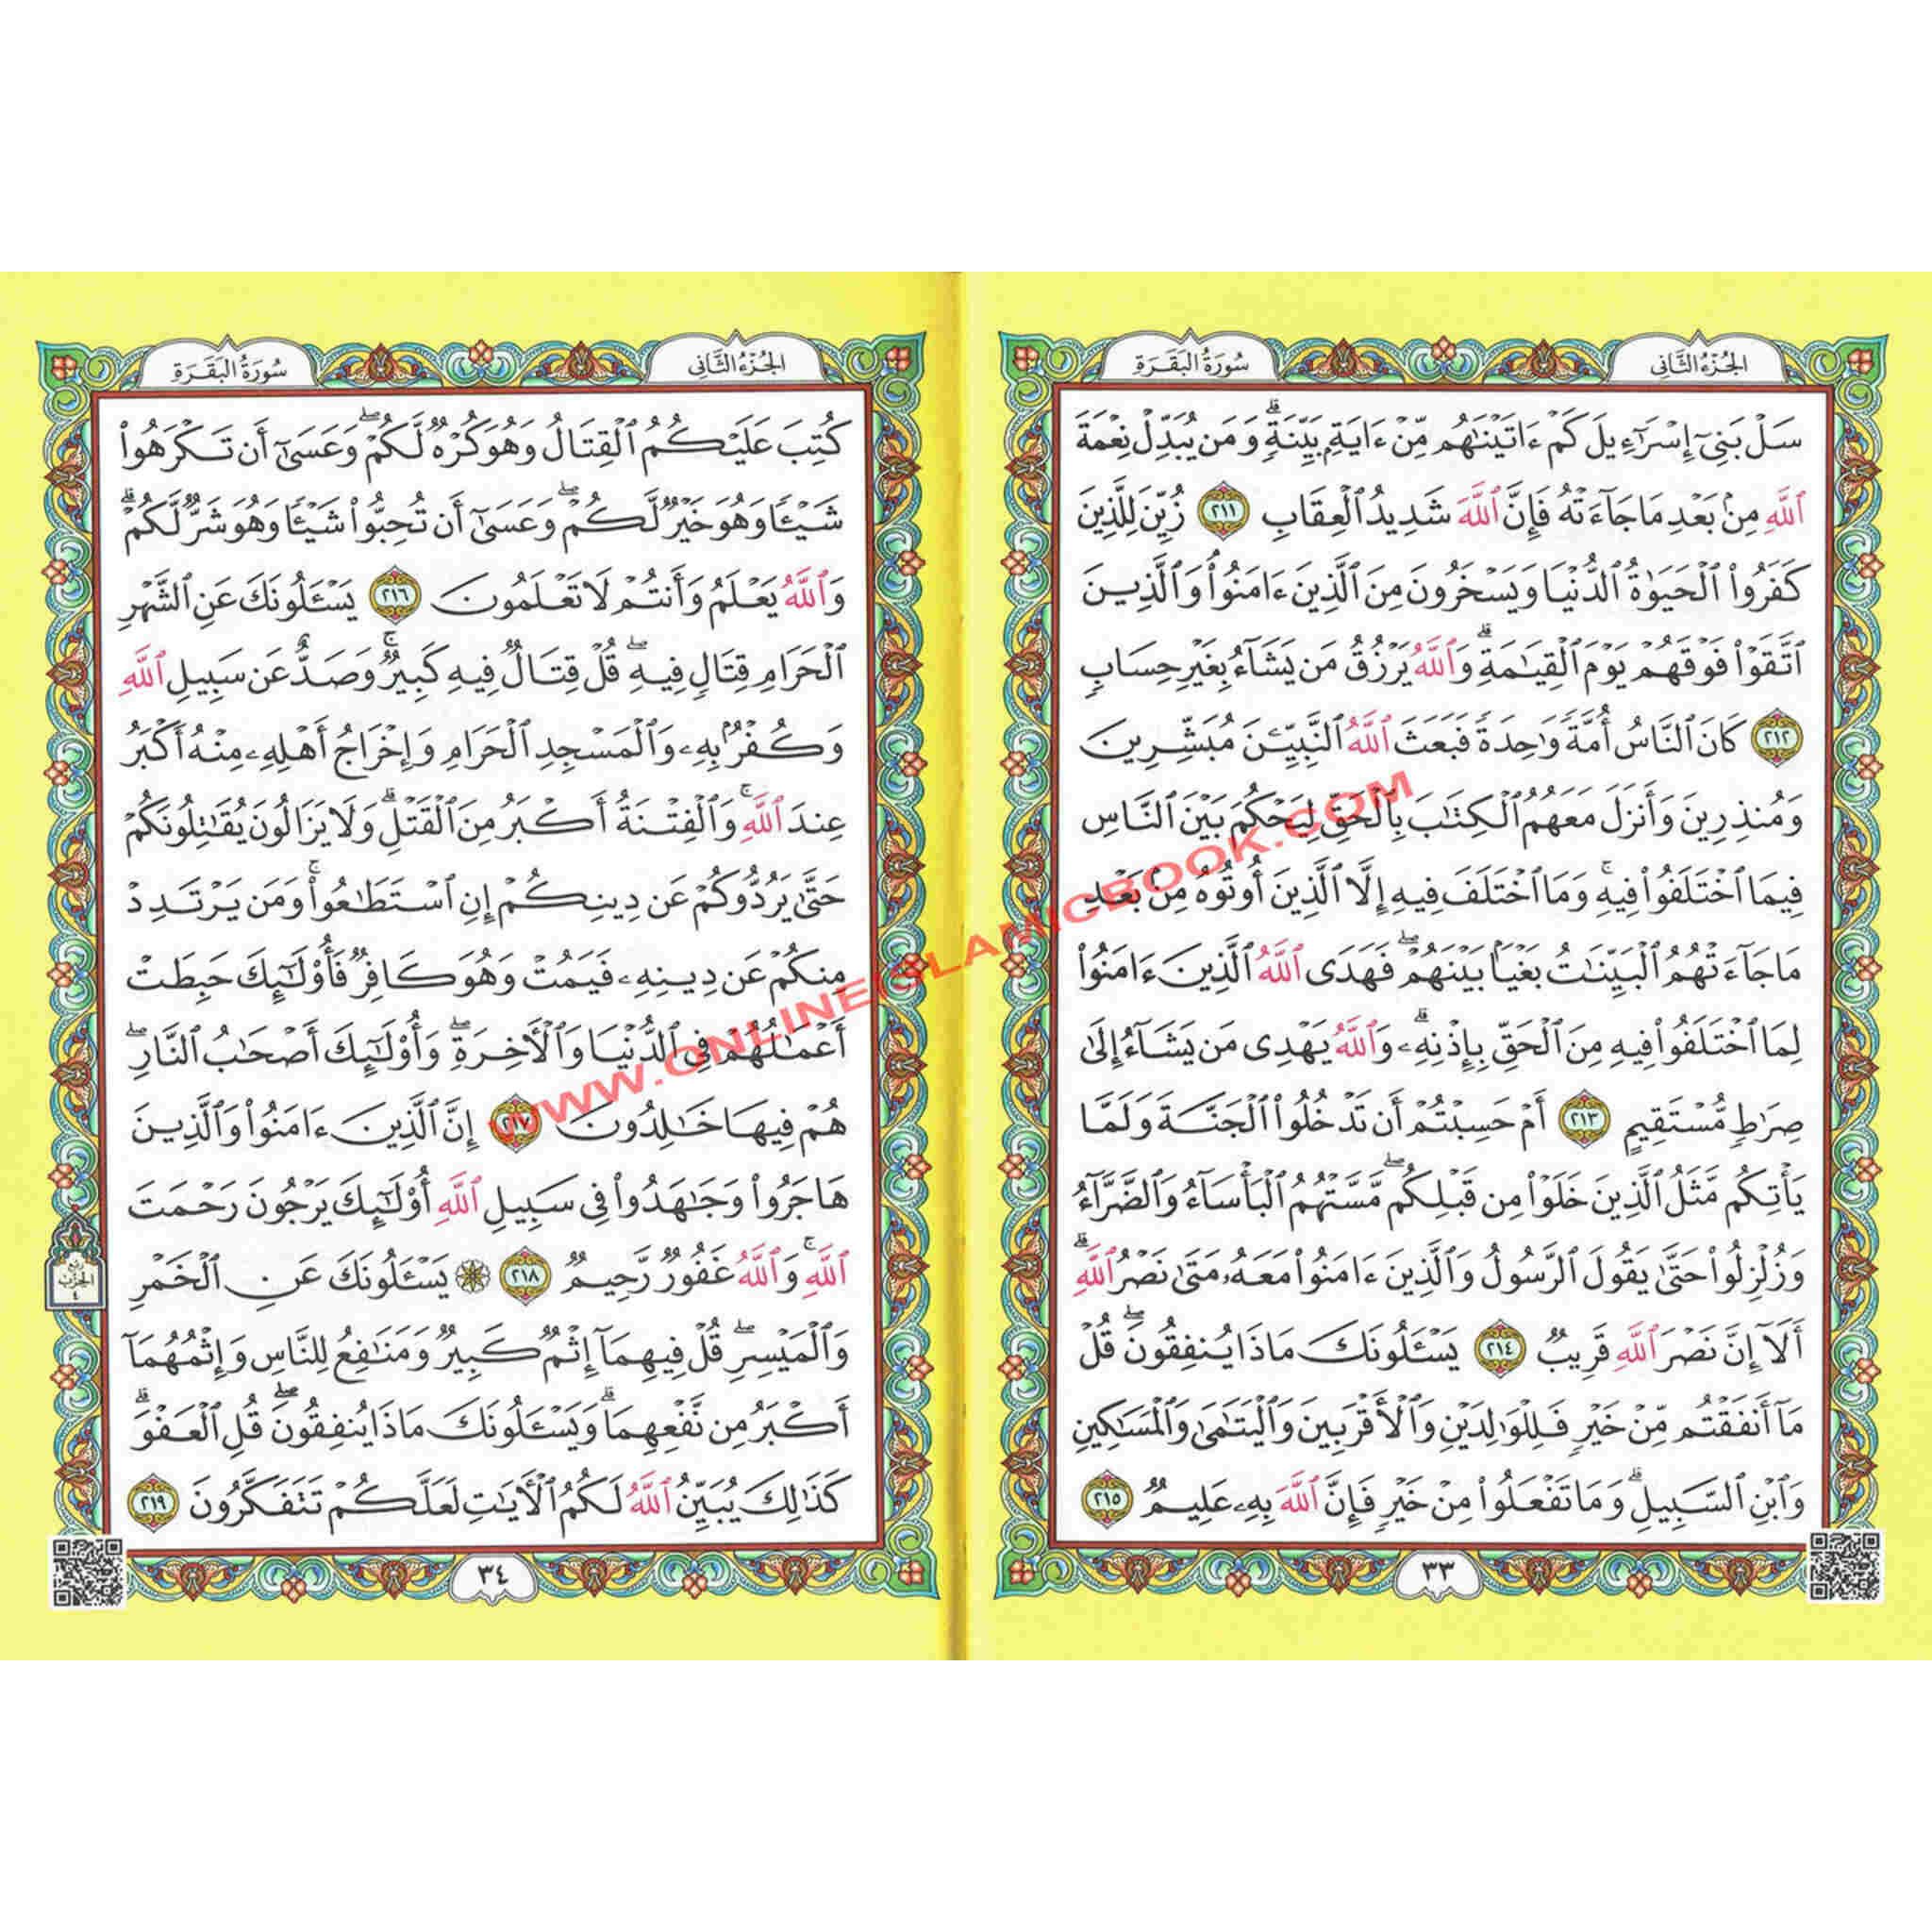 الجُزْءُ الثَّانِي
سُورَةُ البَقَرَةِ
سَلْ بَنِىٓ إِسْرَٰٓءِيلَ كَمْ ءَاتَيْنَٰهُم مِّنْ ءَايَةِۭ بَيِّنَةٍۗ وَمَن يُبَدِّلْ نِعْمَةَ
ٱللَّهِ مِنۢ بَعْدِ مَا جَآءَتْهُ فَإِنَّ ٱللَّهَ شَدِيدُ ٱلْعِقَابِ ٢١١ زُيِّنَ لِلَّذِينَ
كَفَرُوا۟ ٱلْحَيَوٰةُ ٱلدُّنْيَا وَيَسْخَرُونَ مِنَ ٱلَّذِينَ ءَامَنُوا۟ وَٱلَّذِينَ
ٱتَّقَوْا۟ فَوْقَهُمْ يَوْمَ ٱلْقِيَٰمَةِۗ وَٱللَّهُ يَرْزُقُ مَن يَشَآءُ بِغَيْرِ حِسَابٍ
٢١٢ كَانَ ٱلنَّاسُ أُمَّةً وَٰحِدَةً فَبَعَثَ ٱللَّهُ ٱلنَّبِيِّۦنَ مُبَشِّرِينَ
وَمُنذِرِينَ وَأَنزَلَ مَعَهُمُ ٱلْكِتَٰبَ بِٱلْحَقِّ لِيَحْكُمَ بَيْنَ ٱلنَّاسِ
فِيمَا ٱخْتَلَفُوا۟ فِيهِۚ وَمَا ٱخْتَلَفَ فِيهِ إِلَّا ٱلَّذِينَ أُوتُوهُ مِنۢ بَعْدِ
مَا جَآءَتْهُمُ ٱلْبَيِّنَٰتُ بَغْيًۢا بَيْنَهُمْۖ فَهَدَى ٱللَّهُ ٱلَّذِينَ ءَامَنُوا۟
لِمَا ٱخْتَلَفُوا۟ فِيهِ مِنَ ٱلْحَقِّ بِإِذْنِهِۦۗ وَٱللَّهُ يَهْدِى مَن يَشَآءُ إِلَىٰ
صِرَٰطٍ مُّسْتَقِيمٍ ٢١٣ أَمْ حَسِبْتُمْ أَن تَدْخُلُوا۟ ٱلْجَنَّةَ وَلَمَّا
يَأْتِكُم مَّثَلُ ٱلَّذِينَ خَلَوْا۟ مِن قَبْلِكُمۖ مَّسَّتْهُمُ ٱلْبَأْسَآءُ وَٱلضَّرَّآءُ
وَزُلْزِلُوا۟ حَتَّىٰ يَقُولَ ٱلرَّسُولُ وَٱلَّذِينَ ءَامَنُوا۟ مَعَهُۥ مَتَىٰ نَصْرُ ٱللَّهِۗ
أَلَآ إِنَّ نَصْرَ ٱللَّهِ قَرِيبٌ ٢١٤ يَسْـَٔلُونَكَ مَاذَا يُنفِقُونَۖ قُلْ
مَآ أَنفَقْتُم مِّنْ خَيْرٍ فَلِلْوَٰلِدَيْنِ وَٱلْأَقْرَبِينَ وَٱلْيَتَٰمَىٰ وَٱلْمَسَٰكِينِ
وَٱبْنِ ٱلسَّبِيلِۗ وَمَا تَفْعَلُوا۟ مِنْ خَيْرٍ فَإِنَّ ٱللَّهَ بِهِۦ عَلِيمٌ ٢١٥
٣٣
الجُزْءُ الثَّانِي
سُورَةُ البَقَرَةِ
كُتِبَ عَلَيْكُمُ ٱلْقِتَالُ وَهُوَ كُرْهٌ لَّكُمْۖ وَعَسَىٰٓ أَن تَكْرَهُوا۟
شَيْـًٔا وَهُوَ خَيْرٌ لَّكُمْۖ وَعَسَىٰٓ أَن تُحِبُّوا۟ شَيْـًٔا وَهُوَ شَرٌّ لَّكُمْۗ
وَٱللَّهُ يَعْلَمُ وَأَنتُمْ لَا تَعْلَمُونَ ٢١٦ يَسْـَٔلُونَكَ عَنِ ٱلشَّهْرِ
ٱلْحَرَامِ قِتَالٍ فِيهِۖ قُلْ قِتَالٌ فِيهِ كَبِيرٌۚ وَصَدٌّ عَن سَبِيلِ ٱللَّهِ
وَكُفْرٌۢ بِهِۦ وَٱلْمَسْجِدِ ٱلْحَرَامِ وَإِخْرَاجُ أَهْلِهِۦ مِنْهُ أَكْبَرُ
عِندَ ٱللَّهِۚ وَٱلْفِتْنَةُ أَكْبَرُ مِنَ ٱلْقَتْلِۗ وَلَا يَزَالُونَ يُقَٰتِلُونَكُمْ
حَتَّىٰ يَرُدُّوكُمْ عَن دِينِكُمْ إِنِ ٱسْتَطَٰعُوا۟ۚ وَمَن يَرْتَدِدْ
مِنكُمْ عَن دِينِهِۦ فَيَمُتْ وَهُوَ كَافِرٌ فَأُو۟لَٰٓئِكَ حَبِطَتْ
أَعْمَٰلُهُمْ فِى ٱلدُّنْيَا وَٱلْأَخِرَةِۖ وَأُو۟لَٰٓئِكَ أَصْحَٰبُ ٱلنَّارِۖ
هُمْ فِيهَا خَٰلِدُونَ ٢١٧ إِنَّ ٱلَّذِينَ ءَامَنُوا۟ وَٱلَّذِينَ
هَاجَرُوا۟ وَجَٰهَدُوا۟ فِى سَبِيلِ ٱللَّهِ أُو۟لَٰٓئِكَ يَرْجُونَ رَحْمَتَ
ٱللَّهِۚ وَٱللَّهُ غَفُورٌ رَّحِيمٌ ٢١٨ ۞ يَسْـَٔلُونَكَ عَنِ ٱلْخَمْرِ
وَٱلْمَيْسِرِۖ قُلْ فِيهِمَآ إِثْمٌ كَبِيرٌ وَمَنَٰفِعُ لِلنَّاسِ وَإِثْمُهُمَآ
أَكْبَرُ مِن نَّفْعِهِمَاۗ وَيَسْـَٔلُونَكَ مَاذَا يُنفِقُونَۖ قُلِ ٱلْعَفْوَۗ
كَذَٰلِكَ يُبَيِّنُ ٱللَّهُ لَكُمُ ٱلْأَيَٰتِ لَعَلَّكُمْ تَتَفَكَّرُونَ ٢١٩
ربع
الحزب
٤
٣٤
WWW.ONLINEISLAMICBOOK.COM